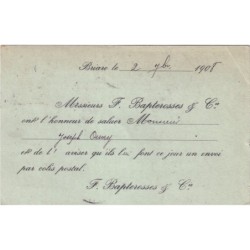 Briare le 2 7bre 1908
Messieurs F. Bapterosses & Cie
ont l'honneur de saluer Monsieur
Joseph
et de l' aviser qu'ils lui font ce jour un envoi
par colis postal.
F. Bapterosses & Cie